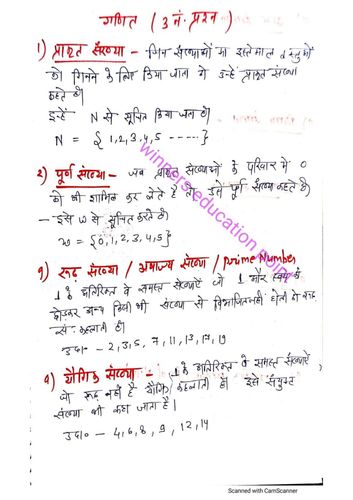 गणित ( 3 नं. प्रश्न )
1) प्राकृत संख्या - जिन संख्याओं का इस्तेमाल वस्तुओं
को गिनने के लिए किया जाता है उन्हें प्राकृत संख्या
कहते है।
इन्हें N से सूचित किया जाता है।
N = { 1, 2, 3, 4, 5 ------ }
2) पूर्ण संख्या - जब प्राकृत संख्याओं के परिवार में 0
को भी शामिल कर लेते है तो उसे पूर्ण संख्या कहते है।
- इसे W से सूचित करते है।
W = { 0, 1, 2, 3, 4, 5 }
१) रूढ़ संख्या / अभाज्य संख्या / Prime Number
1 के अतिरिक्त वे समस्त संख्याएँ जो 1 और स्वयं के
छोड़कर अन्य किसी भी संख्या से विभाजित नही होती है रूढ़
सं. कहलाती है।
उदा० - 2, 3, 5, 7, 11, 13, 17, 19
१) यौगिक संख्या - 1 के अतिरिक्त वे समस्त संख्याएँ
जो रूढ़ नहीं है यौगिक कहलाती है। इसे संयुक्त
संख्या भी कहा जाता है।
उदा० - 4, 6, 8, 9, 12, 14
winners education point
Scanned with CamScanner